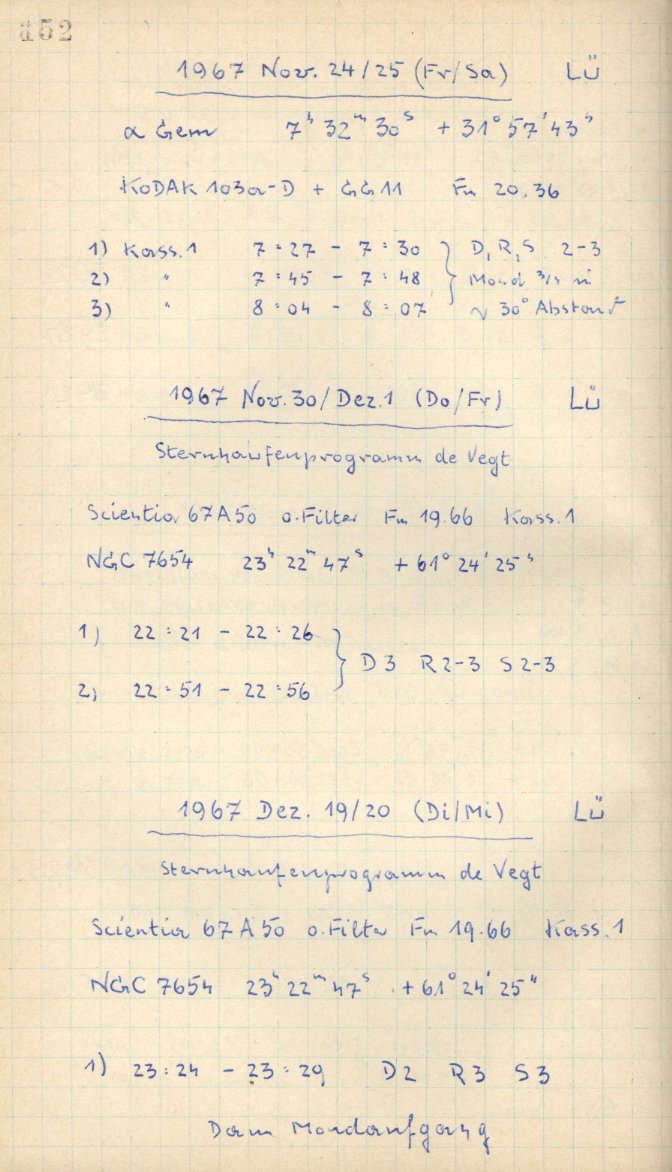 152
1967 Nov. 24/25 (Fr/Sa) Lü
α Gem 7ʰ 32ᵐ 30ˢ + 31° 57' 43"
KODAK 103a-D + GG11 Fn 20.36
1) Kass. 1 7:27 - 7:30 } D, R, S 2-3
2) " 7:45 - 7:48 Mond 3/4 in
3) " 8:04 - 8:07 ~ 30° Abstand
1967 Nov. 30/Dez. 1 (Do/Fr) Lü
Sternhaufenprogramm de Vegt
Scientia 67A50 o. Filter Fn 19.66 Kass. 1
NGC 7654 23ʰ 22ᵐ 47ˢ + 61° 24' 25"
1) 22:21 - 22:26 } D3 R2-3 S2-3
2) 22:51 - 22:56
1967 Dez. 19/20 (Di/Mi) Lü
Sternhaufenprogramm de Vegt
Scientia 67A50 o. Filter Fn 19.66 Kass. 1
NGC 7654 23ʰ 22ᵐ 47ˢ + 61° 24' 25"
1) 23:24 - 23:29 D2 R3 S3
Dann Mondaufgang